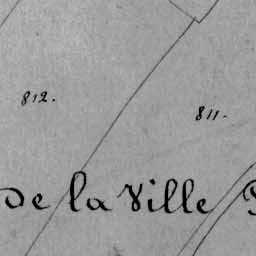 812.
811.
De la Ville